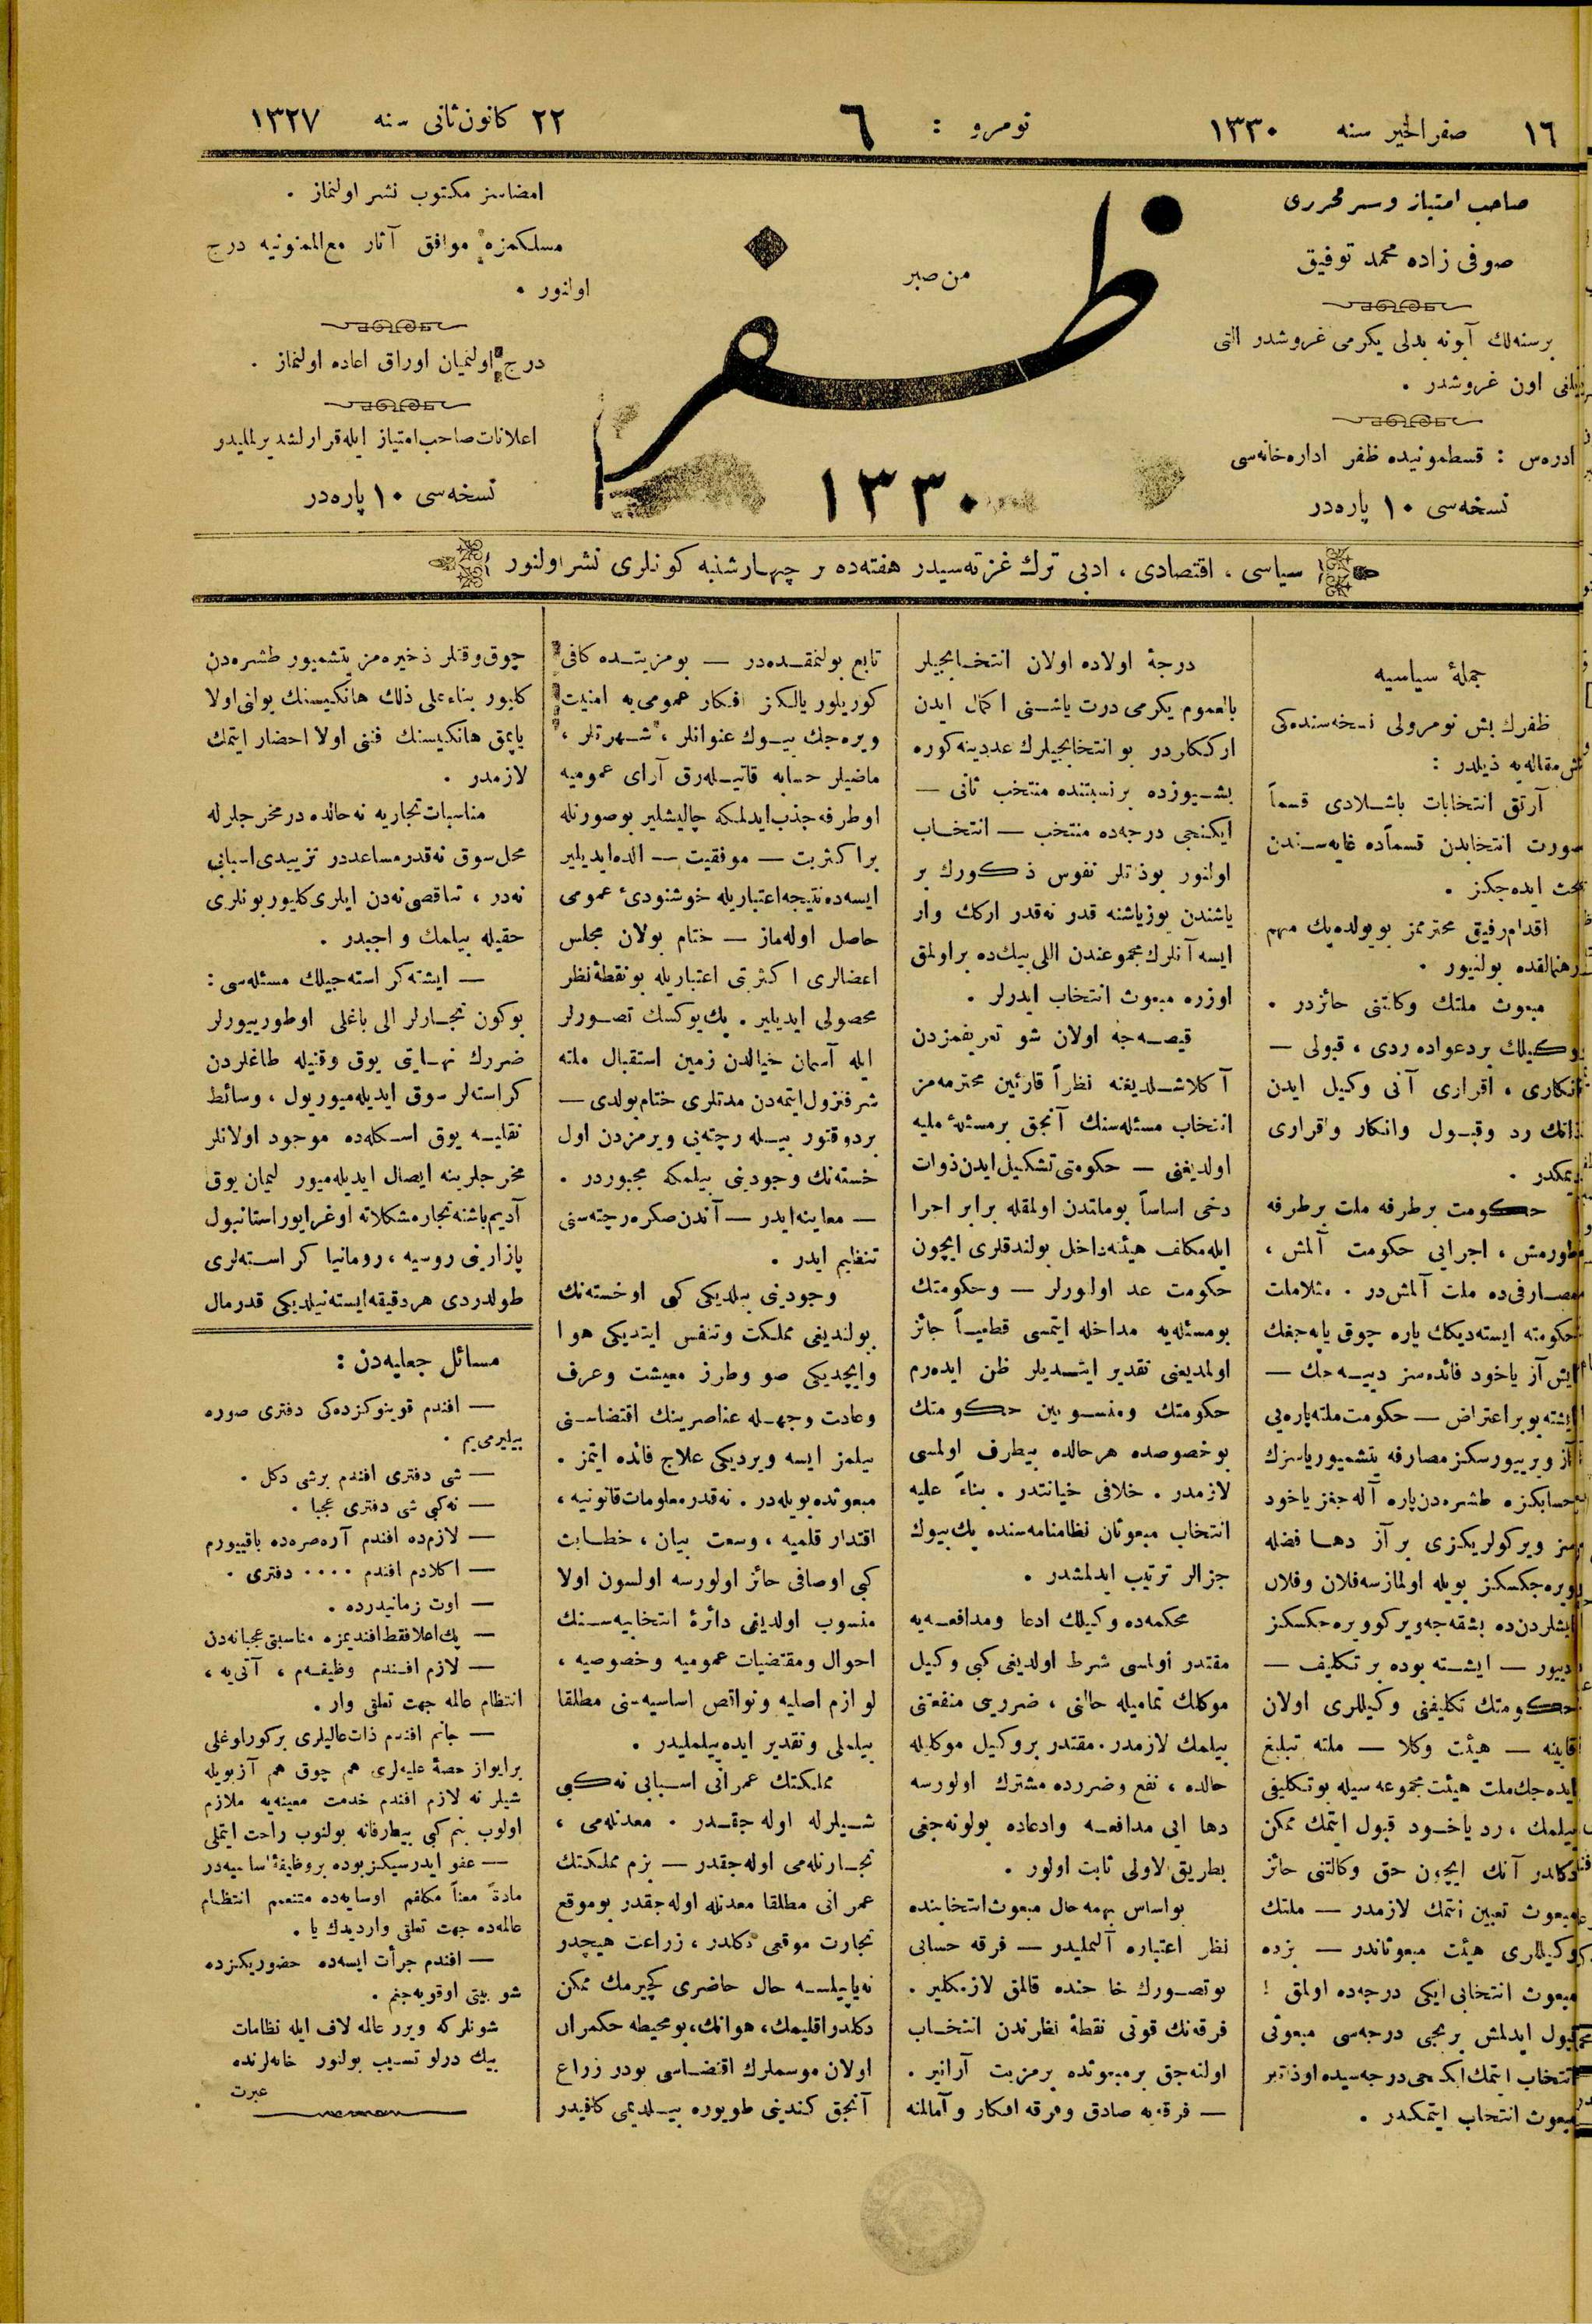 ١٦ صفر الخیر سنه ١٣٣٠
نومرو : ٦
٢٢ كانون ثانی سنه ١٣٢٧
صاحب امتیاز وسرمحرری
صوفی زاده محمد توفیق
برسنه‌لك آبونه بدلی یكرمی غروشدر التی
آیلغی اون غروشدر .
ادره‌س : قسطمونیده ظفر اداره‌خانه‌سی
نسخه‌سی ١٠ پاره‌در
من صبر
ظفر
١٣٣٠
امضاسز مكتوب نشر اولنماز .
مسلكمزه موافق آثار مع‌الممنونیه درج
اولنور .
درج اولنمیان اوراق اعاده اولنماز .
اعلانات صاحب امتیاز ایله قرارلشدیرلملیدر
نسخه‌سی ١٠ پاره‌در
سیاسی ، اقتصادی ، ادبی ترك غزته‌سیدر هفته‌ده بر چهارشنبه كونلری نشر اولنور
جملهٔ سیاسیه
ظفرك بش نومرولی نسخه‌سنده‌كی
باش مقاله‌یه ذیلدر :
آرتق انتخابات باشلادی قسماً
صورت انتخابدن قسماًده غایه‌سندن
بحث ایده‌جكز .
اقدام رفیق محترمز بویولده‌پك مهم
رهنمالقده بولنیور .
مبعوث ملتك وكالتنی حائزدر .
وكیلك بردعواده ردی ، قبولی —
انكاری ، اقراری آنی وكیل ایدن
ذاتك رد وقبول وانكار واقراری
دیمكدر .
حكومت برطرفه ملت برطرفه
طورمش ، اجرایی حكومت آلمش ،
مصارفی‌ده ملت آلمش‌در . مثلاملت
حكومته ایسته‌دیكك پاره چوق یاپه‌جغك
ایش آز یاخود فائده‌سز دییه‌جك —
ایشته بو بر اعتراض — حكومت ملته‌پاره‌یی
آز ویرییورسكز مصارفه یتشمیور یاسزك
حسابكزه طشره‌دن پاره آله‌جغز یاخود
سز ویركولریكزی بر آز دها فضله
ویره‌جكسكز بویله اولمازسه فلان وفلان
ایشلردن‌ده بشقه‌جه ویركو ویره‌جكسكز
دییور — ایشته بوده بر تكلیف —
حكومتك تكلیفنی وكیللری اولان
قابینه — هیئت وكلا — ملته تبلیغ
ایده‌جك ملت هیئت مجموعه سیله بوتكلیفی
بیلمك ، رد یاخود قبول ایتمك ممكن
دكلدر آنك ایچون حق وكالتنی حائز
مبعوث تعیین ایتمك لازمدر — ملتك
وكیللری هیئت مبعوثاندر — بزده
مبعوث انتخابی ایكی درجه‌ده اولمق !
قبول ایدلمش برنجی درجه‌سی مبعوثی
انتخاب ایتمك ایكنجی درجه‌سیده اوذاتلر
مبعوث انتخاب ایتمكدر .
درجهٔ اولاده اولان انتخابجیلر
بالعموم یكرمی درت یاشنی اكمال ایدن
ارككاردر بو انتخابجیلرك عددینه كوره
بشیوزده بر نسبتنده منتخب ثانی —
ایكنجی درجه‌ده منتخب — انتخاب
اولنور بوذاتلر نفوس ذكورك بر
یاشندن یوزیاشنه قدر نه‌قدر ارك‌ك وار
ایسه آنلرك مجموعندن اللی بیك‌ده بر اولمق
اوزره مبعوث انتخاب ایدرلر .
قیصه‌جه اولان شو تعریفمزدن
آكلاشلدیغنه نظراً قارئین محترمه‌مز
انتخاب مسئله‌سنك آنجق بر مسئلهٔ ملیه
اولدیغنی — حكومتی تشكیل ایدن ذوات
دخی اساساً بوملتدن اولمقله برابر اجرا
ایله مكلف هیئته داخل بولندقلری ایچون
حكومت عد اولنورلر — وحكومتك
بومسئله‌یه مداخله ایتمسی قطعیاً جائز
اولمدیغنی تقدیر ایتدیلر ظن ایده‌رم
حكومتك ومنسوبین حكومتك
بوخصوصده هرحالده بیطرف اولمسی
لازمدر . خلافی خیانتدر . بناءً علیه
انتخاب مبعوثان نظامنامه‌سنده پك بیوك
جزالر ترتیب ایدلمشدر .
محكمه‌ده وكیلك ادعا ومدافعه‌یه
مقتدر اولمسی شرط اولدیغی كبی وكیل
موكلك تمامیله حالنی ، ضررینی منفعتنی
بیلمك لازمدر . مقتدر بروكیل موكلیله
حالده ، نفع وضررده مشترك اولورسه
دها ایی مدافعه وادعاده بولونه‌جغی
بطریق‌الاولی ثابت اولور .
بواساس بهمه‌حال مبعوث انتخابنده
نظر اعتباره آلنملیدر — فرقه حسابی
بوتصورك خارجنده قالمق لازمكلیر .
فرقه‌نك قوتی نقطهٔ نظرندن انتخاب
اولنه‌جق برمبعوثده برمزیت آرانیر .
— فرقه‌یه صادق وفرقه افكار وآمالنه
تابع بولنمقده‌در — بومزیتده كافی
كوریلور یالكز افكار عمومی‌یه امنیت
ویره‌جك بیوك عنوانلر ، شهرتلر ،
ماضیلر حسابه قاتیله‌رق آرای عمومیه
اوطرفه جذب ایدلمكه چالیشلیر بوصورتله
بر اكثریت — موفقیت — الده ایدیلیر
ایسه‌ده نتیجه اعتباریله خوشنودیٔ عمومی
حاصل اوله‌ماز — ختام بولان مجلس
اعضالری اكثرتی اعتباریله بونقطهٔ نظر
محصولی ایدیلیر . پك یوكسك تصورلر
ایله آسمان خیالدن زمین استقبال ملته
شرفنزول ایتمه‌دن مدتلری ختام بولدی —
بردوقتور بیله رچته‌یی ویرمزدن اول
خسته‌نك وجودینی بیلمكه مجبوردر .
— معاینه ایدر — آندن صكره رچته‌سنی
تنظیم ایدر .
وجودینی بیلدیكی كبی اوخسته‌نك
بولندیغی مملكت وتنفس ایتدیكی هوا
وایچدیكی صو وطرز معیشت وعرف
وعادت وجهله عناصرینك اقتضاسنی
بیلمز ایسه ویردیكی علاج فائده ایتمز .
مبعوثده بویله‌در . نه‌قدر معلومات قانونیه ،
اقتدار قلمیه ، وسعت بیان ، خطابت
كبی اوصافی حائز اولورسه اولسون اولا
منسوب اولدیغی دائرهٔ انتخابیه‌سنك
احوال ومقتضیات عمومیه وخصوصیه ،
لوازم اصلیه ونواقص اساسیه‌سنی مطلقا
بیلملی وتقدیر ایده‌بیلملیدر .
مملكتك عمرانی اسبابی نه‌كبی
شیلرله اوله‌جقدر . معدنله‌می ،
تجارتله‌می اوله‌جقدر — بزم مملكتك
عمرانی مطلقا معدنله اوله‌جقدر بوموقع
تجارت موقعی دكلدر ، زراعت هیچدر
نه‌یاپیلسه حال حاضری كچیرمك ممكن
دكلدر اقلیمك ، هوانك ، بومحیطه حكمران
اولان موسملرك اقتضاسی بودر زراع
آنجق كندینی طویوره بیلدیمی كافیدر
چوق وقتلر ذخیره‌مز یتشمیور طشره‌دن
كلیور بناءً علی ذلك هانكیسنك یولنی اولا
یاپمق هانكیسنك فننی اولا احضار ایتمك
لازمدر .
مناسبات تجاریه نه حالده‌در مخرجلرله
محل سوق نه‌قدر مساعددر تزییدی اسبابی
نه‌در ، تناقصی نه‌دن ایلری كلیور بونلری
حقیله بیلمك واجبدر .
— ایشته كراسته‌جیلك مسئله‌سی :
بوكون تجارلر الی باغلی اوطورییورلر
ضررك نهایتی یوق وقتیله طاغلردن
كراسته‌لر سوق ایدیله‌میور یول ، وسائط
نقلیه یوق اسكله‌ده موجود اولانلر
مخرجلرینه ایصال ایدیله‌میور لیمان یوق
آدیم باشنه تجار مشكلاته اوغرایور استانبول
پازارینی روسیه ، رومانیا كراسته‌لری
طولدردی هردقیقه ایسته‌نیلدیكی قدر مال
مسائل جعلیه‌دن :
— افندم قوینوكزده‌كی دفتری صوره
بیلیرمی‌یم .
— شی دفتری افندم برشی دكل .
— نه‌كبی شی دفتری عجبا .
— لازم‌ده افندم آره‌صره‌ده باقییورم
— اكلادم افندم .... دفتری .
— اوت زمانیدرده .
— پك‌اعلا فقط افندیمزه مناسبتی عجبا نه‌دن
— لازم افندم وظیفه‌م ، آتی‌یه ،
انتظام عالمه جهت تعلقی وار .
— جانم افندم ذات عالیلری بركوراوغلی
برایواز حصهٔ علیه‌لری هم چوق هم آز بویله
شیلر نه لازم افندم خدمت معینه‌یه ملازم
اولوب بنم كبی بیطرفانه بولنوب راحت ایتملی
— عفو ایدرسیكز بوده بر وظیفهٔ اساسیه‌در
مادةً معناً مكلفم اوسایه‌ده متنعمم انتظام
عالمه‌ده جهت تعلقی واردیدك یا .
— افندم جرأت ایسه‌ده حضوریكزده
شو بیتی اوقویه‌جغم .
شونلر كه ویرر عالمه لاف ایله نظامات
بیك درلو تسیب بولنور خانه‌لرنده
عبرت